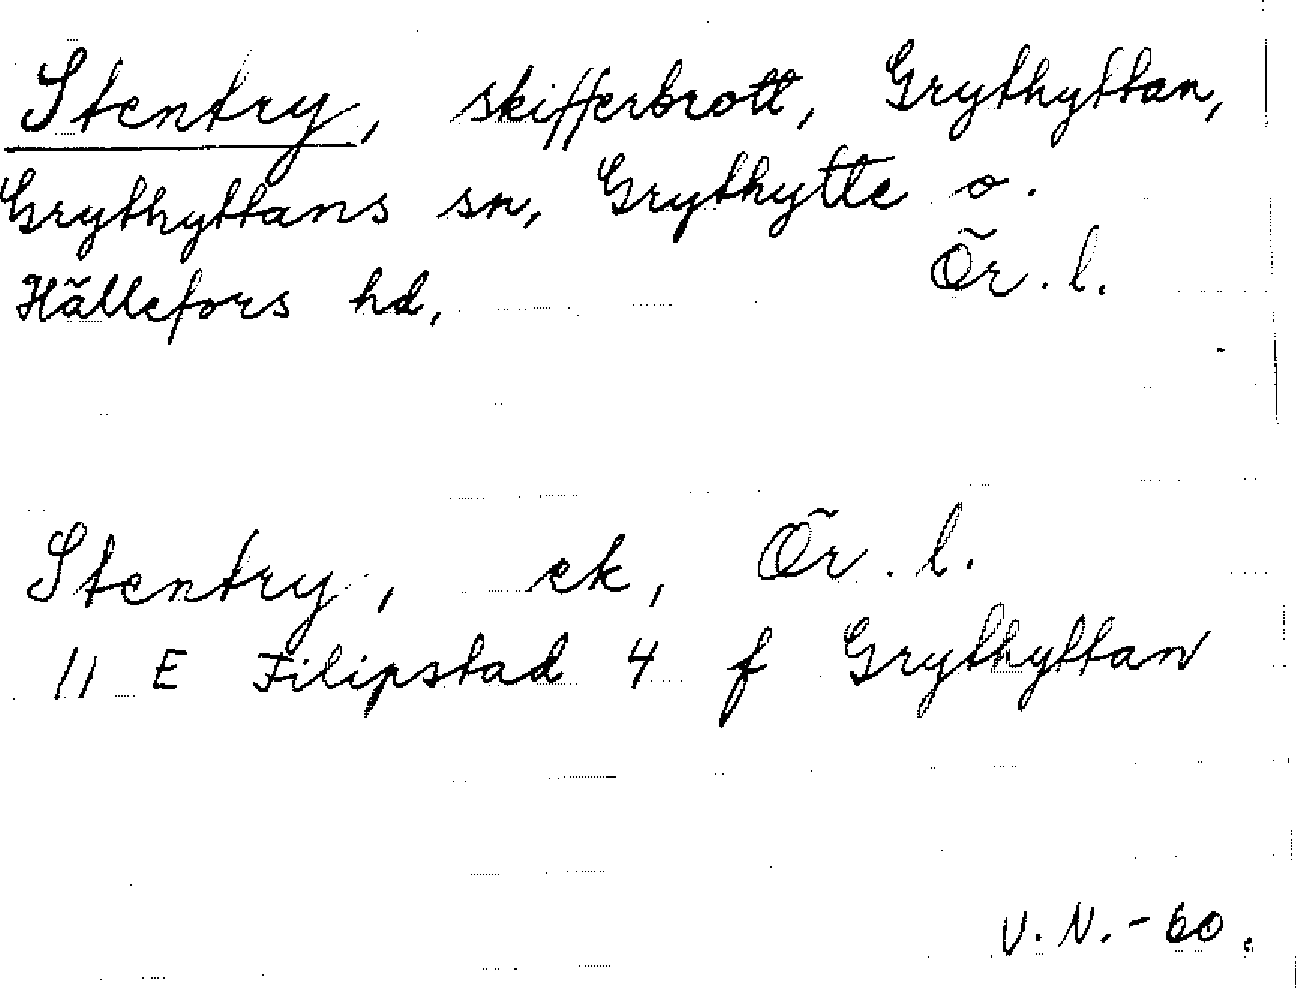 Stentry, skifferbrott, Grythyttan,
Grythyttans sn, Grythytte o.
Hällefors hd, Ör. l.
Stentry, ek, Ör. l.
11 E Filipstad 4 f Grythyttan
V.N.-60.